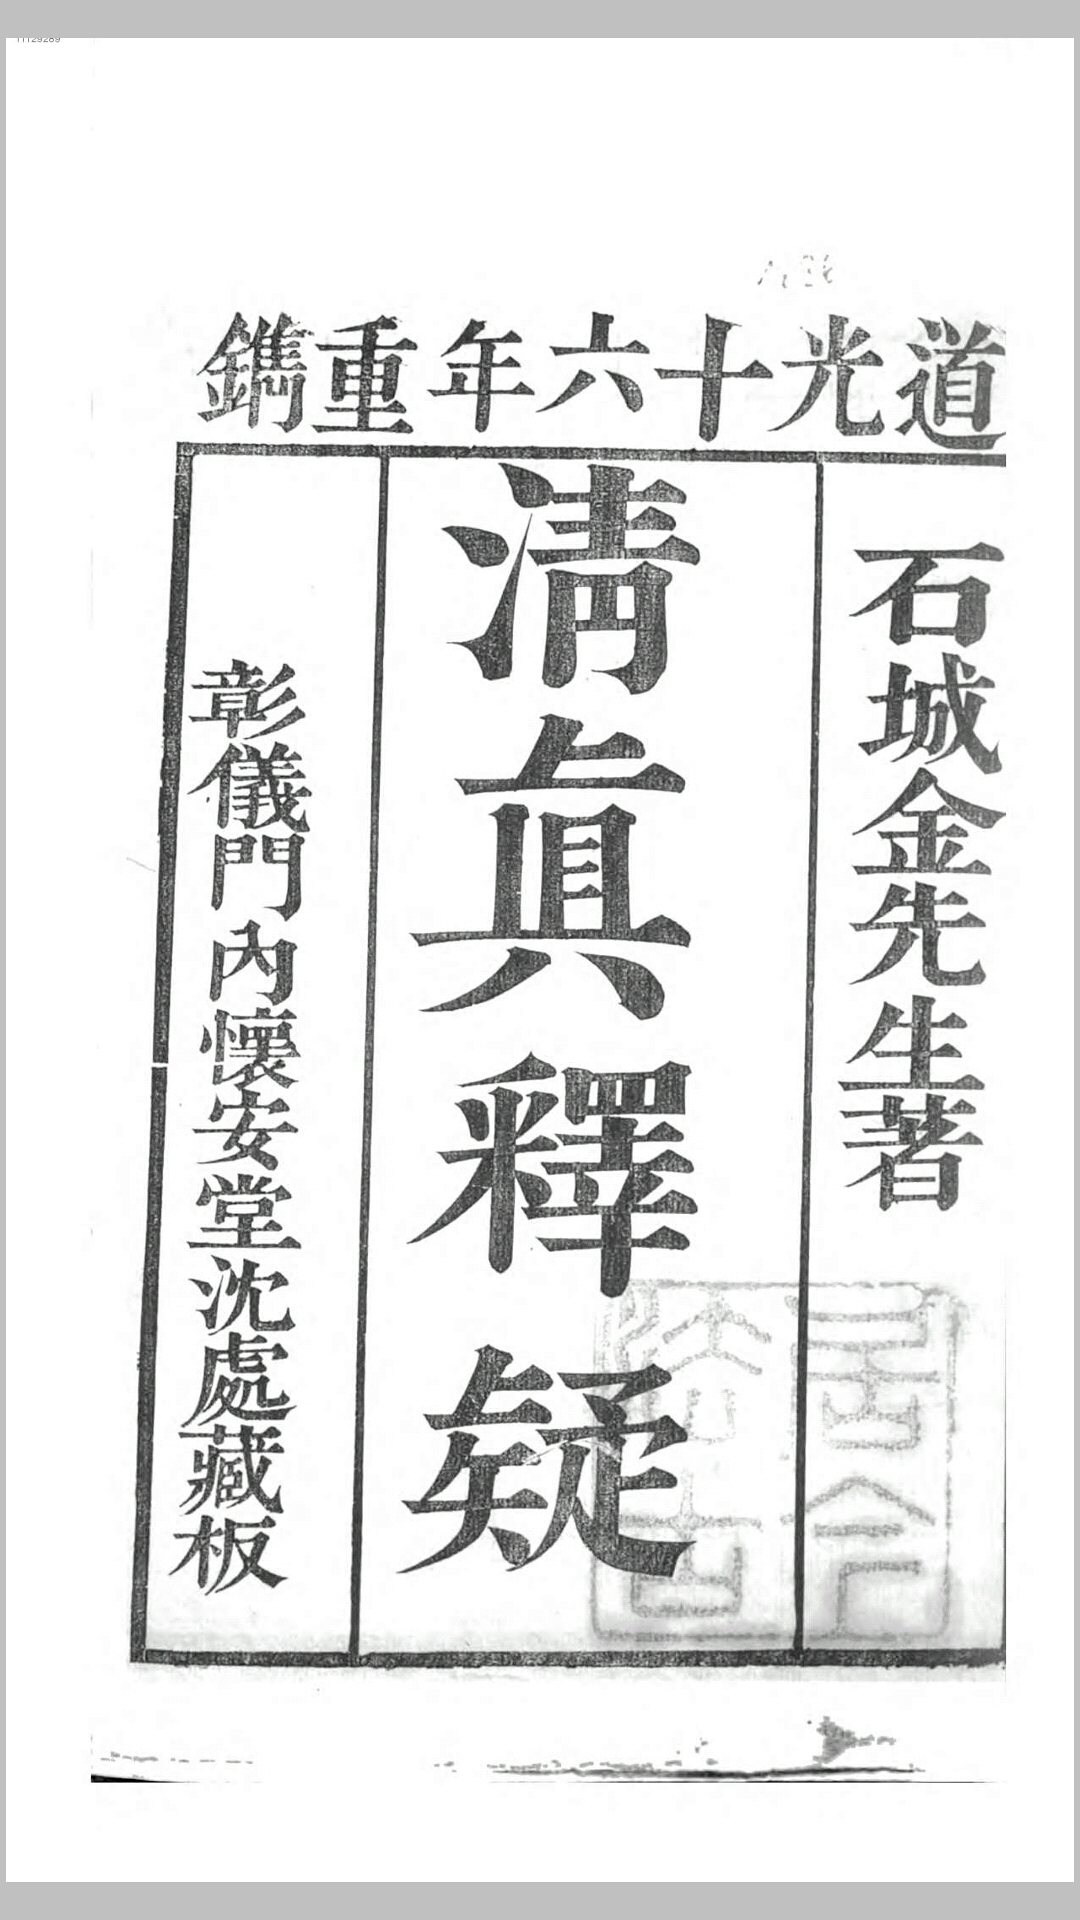 道光十六年重鐫
石城金先生著
淸眞釋疑
彰儀門內懷安堂沈處藏板
11129289